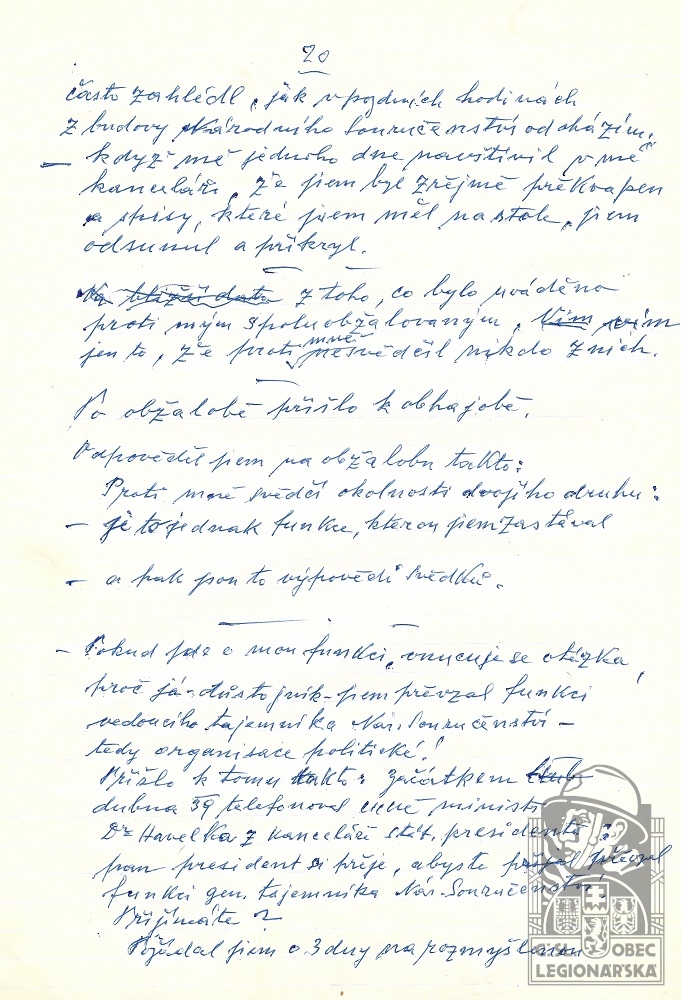 20
často zahlédl, jak v pozdních hodinách
z budovy Národního Souručenství odcházím.
— když mě jednoho dne navštívil v mé
kanceláři, že jsem byl zřejmě překvapen
a spisy, které jsem měl na stole, jsem
odsunul a přikryl.
Na bližší data z toho, co bylo uváděno
proti mým spoluobžalovaným, Vím vím
jen to, že proti mně nesvědčil nikdo z nich.
Po obžalobě přišlo k obhajobě.
Odpověděl jsem na obžalobu takto:
Proti mně svědčí okolnosti dvojího druhu:
– je to jednak funkce, kterou jsem zastával
– a pak jsou to výpovědi svědků.
– Pokud jde o mou funkci, vnucuje se otázka,
proč já - důstojník - jsem převzal funkci
vedoucího tajemníka Nár. Souručenství –
tedy organisace politické!
Přišlo k tomu takto: začátkem
dubna 39 telefonoval mně ministr
Dr Havelka z kanceláře stát. presidenta:
pan president si přeje, abyste převzal
funkci gen. tajemníka Nár. Souručenství
Přijímáte?
Požádal jsem o 3 dny na rozmyšlenou
ČSL. OBEC
LEGIONÁŘSKÁ